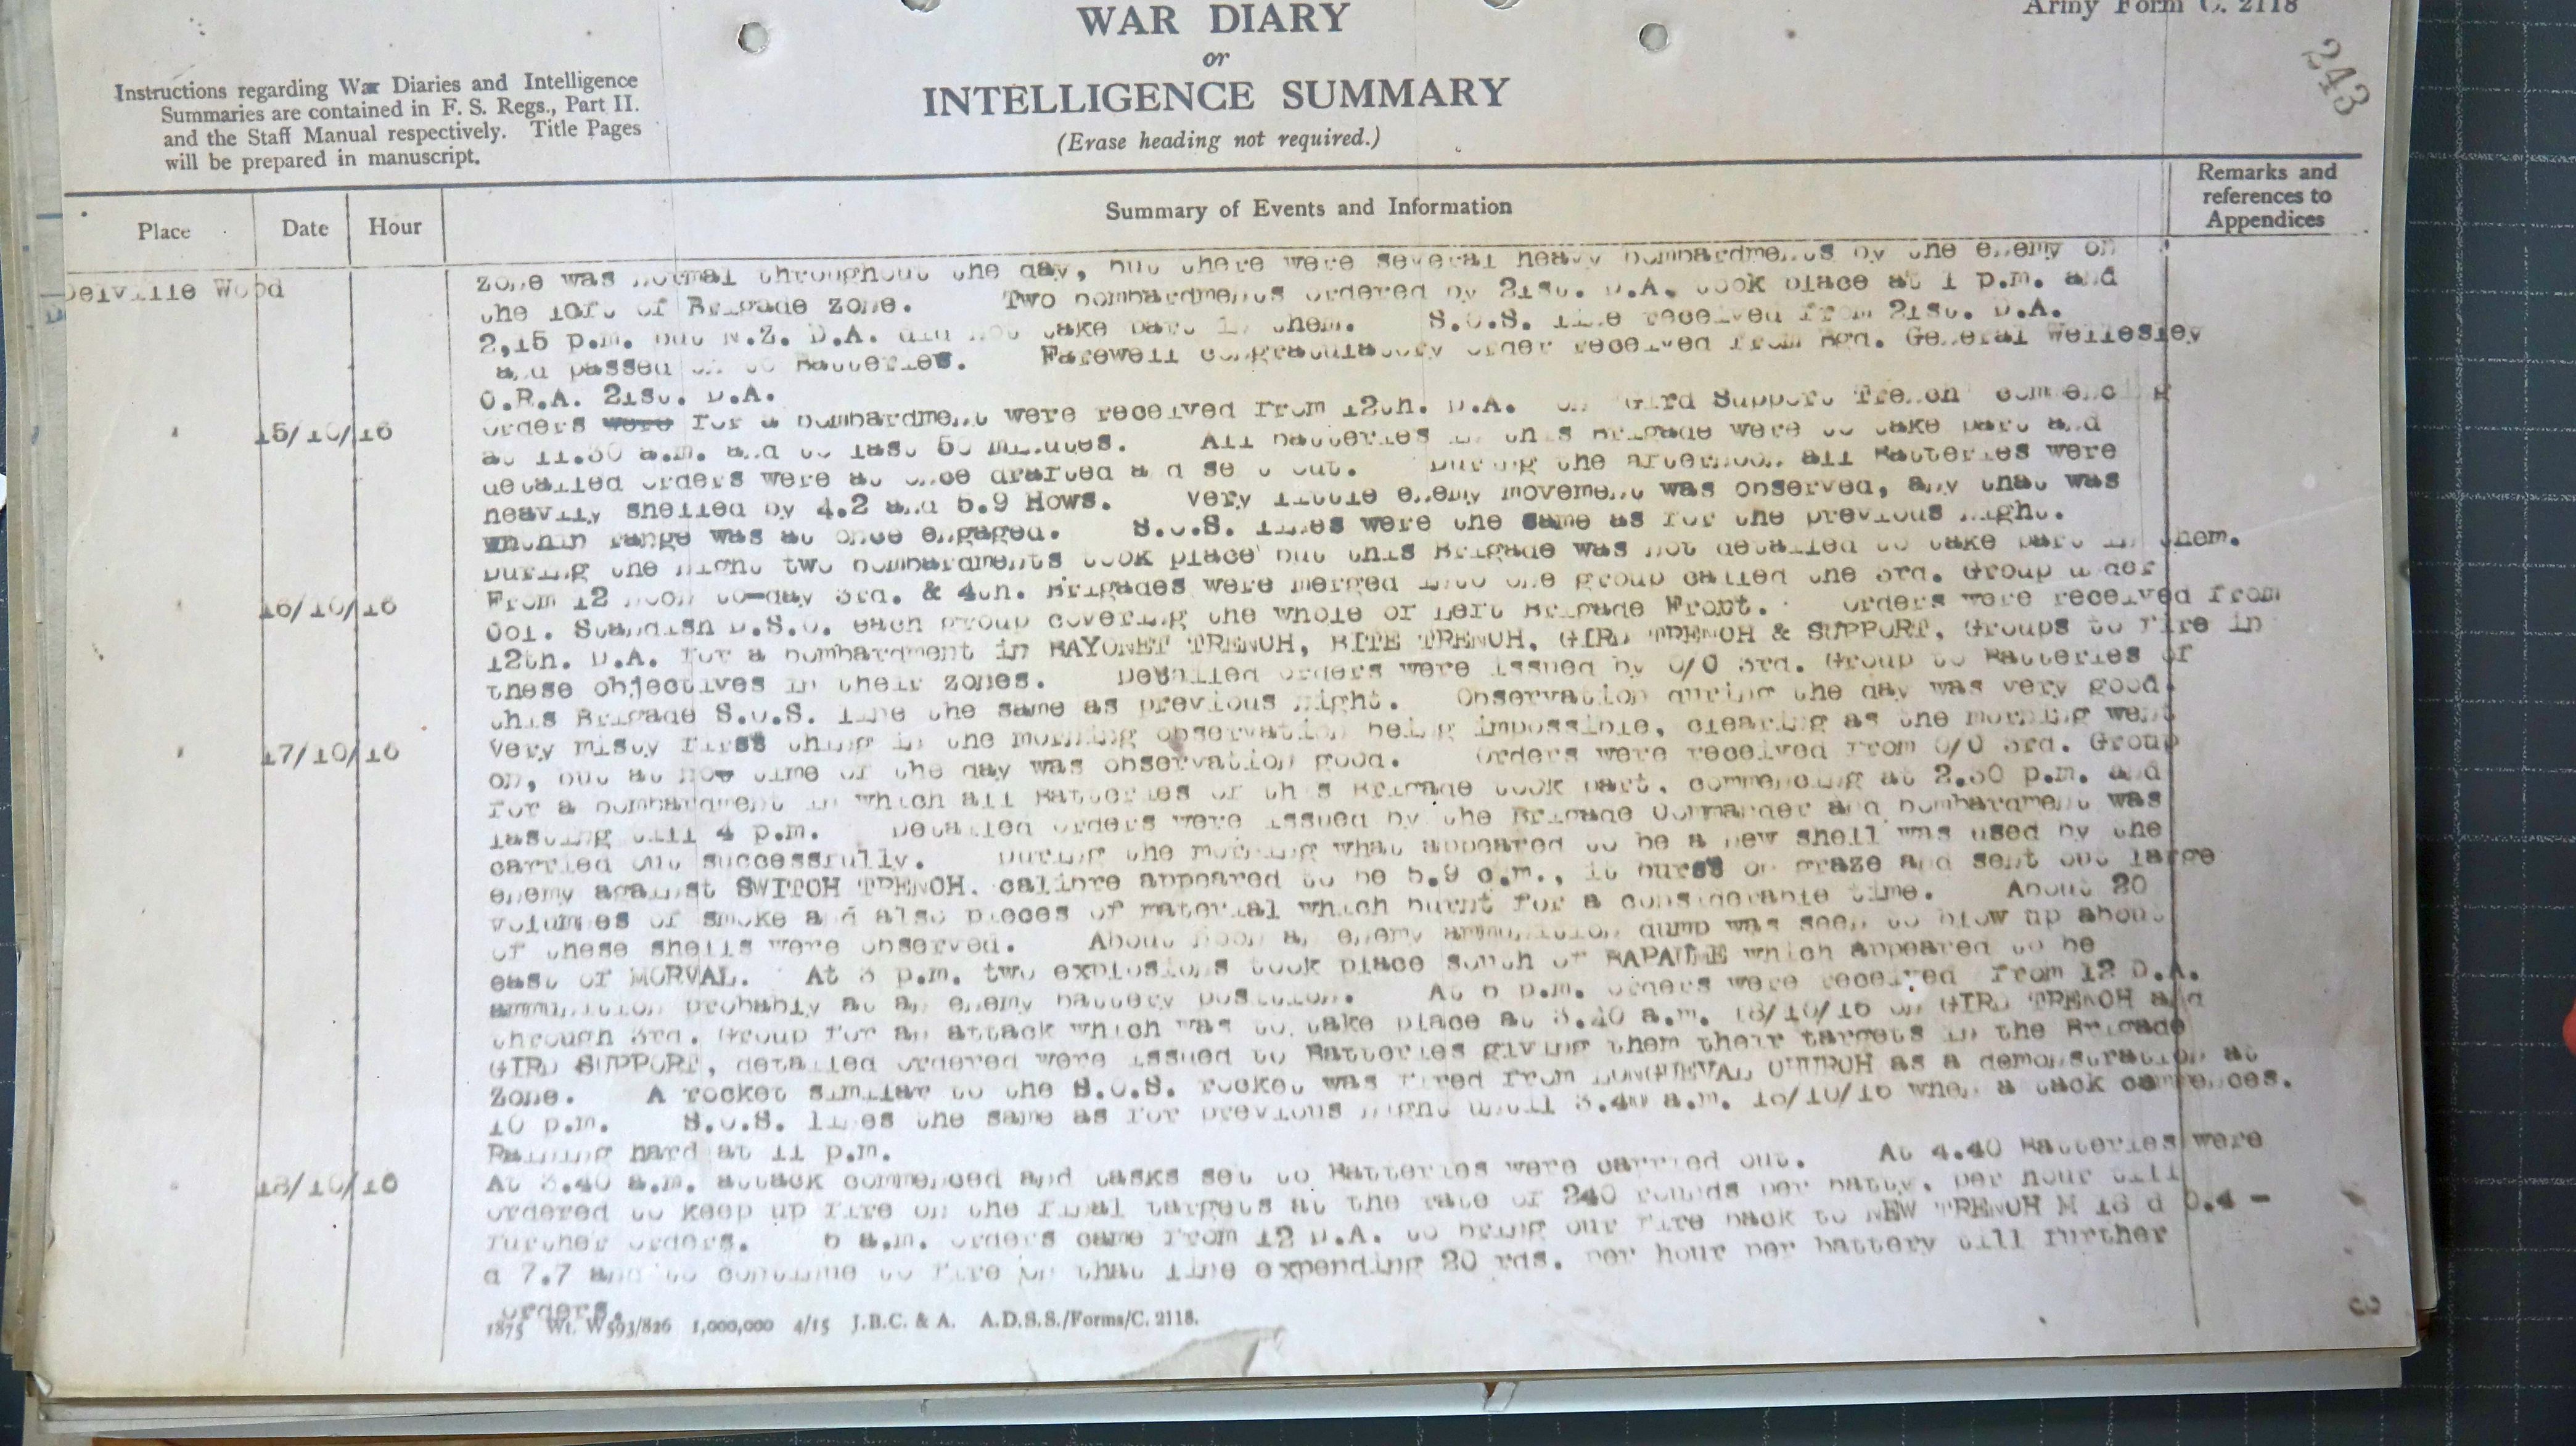 WAR DIARY
Army Form C. 2118
or
INTELLIGENCE SUMMARY
(Erase heading not required.)
243
Instructions regarding War Diaries and Intelligence
Summaries are contained in F. S. Regs., Part II.
and the Staff Manual respectively. Title Pages
will be prepared in manuscript.
Place
Date
Hour
Summary of Events and Information
Remarks and
references to
Appendices
Delville Wood
zone was normal throughout the day, but there were several heavy bombardments by the enemy on
the left of Brigade zone. Two bombardments ordered by 21st. D.A. took place at 1 p.m. and
2,15 p.m. but N.Z. D.A. did not take part in them. S.O.S. line received from 21st. D.A.
and passed on to Batteries. Farewell congratulatory order received from Bgd. General Wellesley
C.R.A. 21st. D.A.
15/10/16
orders were for a bombardment were received from 12th. D.A. on Gird Support Trench commencing
at 11.30 a.m. and to last 50 minutes. All batteries in this Brigade were to take part and
detailed orders were at once drafted and sent out. During the afternoon all Batteries were
heavily shelled by 4.2 and 5.9 Hows. Very little enemy movement was observed, any that was
within range was at once engaged. S.O.S. lines were the same as for the previous night.
During the night two bombardments took place but this Brigade was not detailed to take part in them.
16/10/16
From 12 noon to-day 3rd. & 4th. Brigades were merged into one group called the 3rd. Group under
Col. Standish D.S.O. each group covering the whole of Left Brigade Front. Orders were received from
12th. D.A. for a bombardment in BAYONET TRENCH, BITE TRENCH, GIRD TRENCH & SUPPORT, Groups to fire in
these objectives in their zones. Detailed orders were issued by O/C 3rd. Group to Batteries of
this Brigade S.O.S. line the same as previous night. Observation during the day was very good.
17/10/16
Very misty first thing in the morning observation being impossible, clearing as the morning went
on, but at no time of the day was observation good. Orders were received from O/C 3rd. Group
for a bombardment in which all Batteries of this Brigade took part, commencing at 2.30 p.m. and
lasting till 4 p.m. Detailed orders were issued by the Brigade Commander and bombardment was
carried out successfully. During the morning what appeared to be a new shell was used by the
enemy against SWITCH TRENCH, calibre appeared to be 5.9 c.m., it burst on graze and sent out large
volumes of smoke and also pieces of material which burnt for a considerable time. About 20
of these shells were observed. About noon an enemy ammunition dump was seen to blow up about
east of MORVAL. At 3 p.m. two explosions took place south of BAPAUME which appeared to be
ammunition probably at an enemy battery position. At 6 p.m. orders were received from 12 D.A.
through 3rd. Group for an attack which was to take place at 3.40 a.m. 18/10/16 on GIRD TRENCH and
GIRD SUPPORT, detailed ordered were issued to Batteries giving them their targets in the Brigade
Zone. A rocket similar to the S.O.S. rocket was fired from LONGUEVAL CHURCH as a demonstration at
10 p.m. S.O.S. lines the same as for previous night until 3.40 a.m. 18/10/16 when attack commences.
Raining hard at 11 p.m.
18/10/16
At 3.40 a.m. attack commenced and tasks set to Batteries were carried out. At 4.40 Batteries were
ordered to keep up fire on the final targets at the rate of 240 rounds per batty. per hour till
further orders. 6 a.m. orders came from 12 D.A. to bring our fire back to NEW TRENCH M 18 d 0.4 -
d 7.7 and to continue to fire on that line expending 20 rds. per hour per battery till further
orders.
1875 Wt. W593/826 1,000,000 4/15 J.B.C. & A. A.D.S.S./Forms/C. 2118.